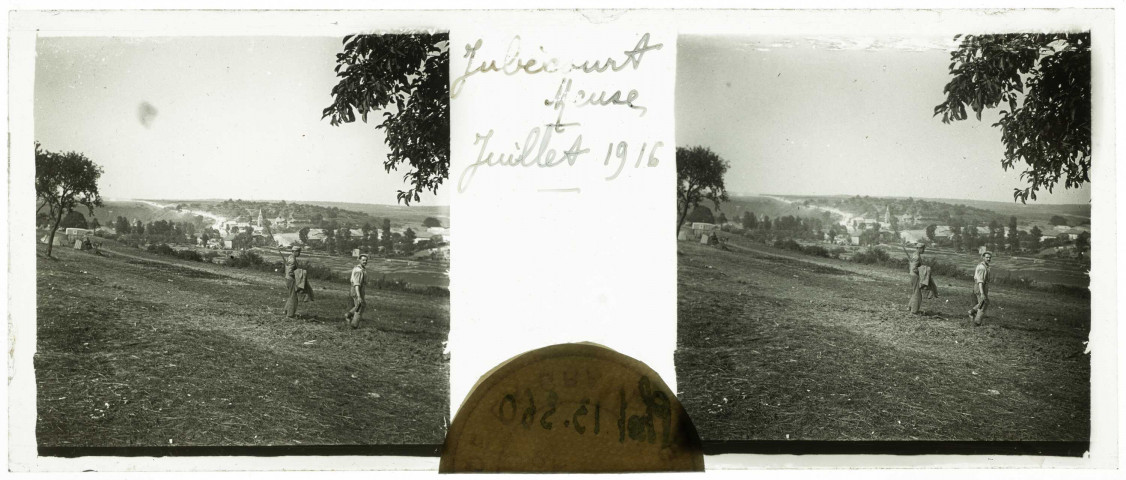 Jubécourt
Meuse
Juillet 1916
Phot 13.560